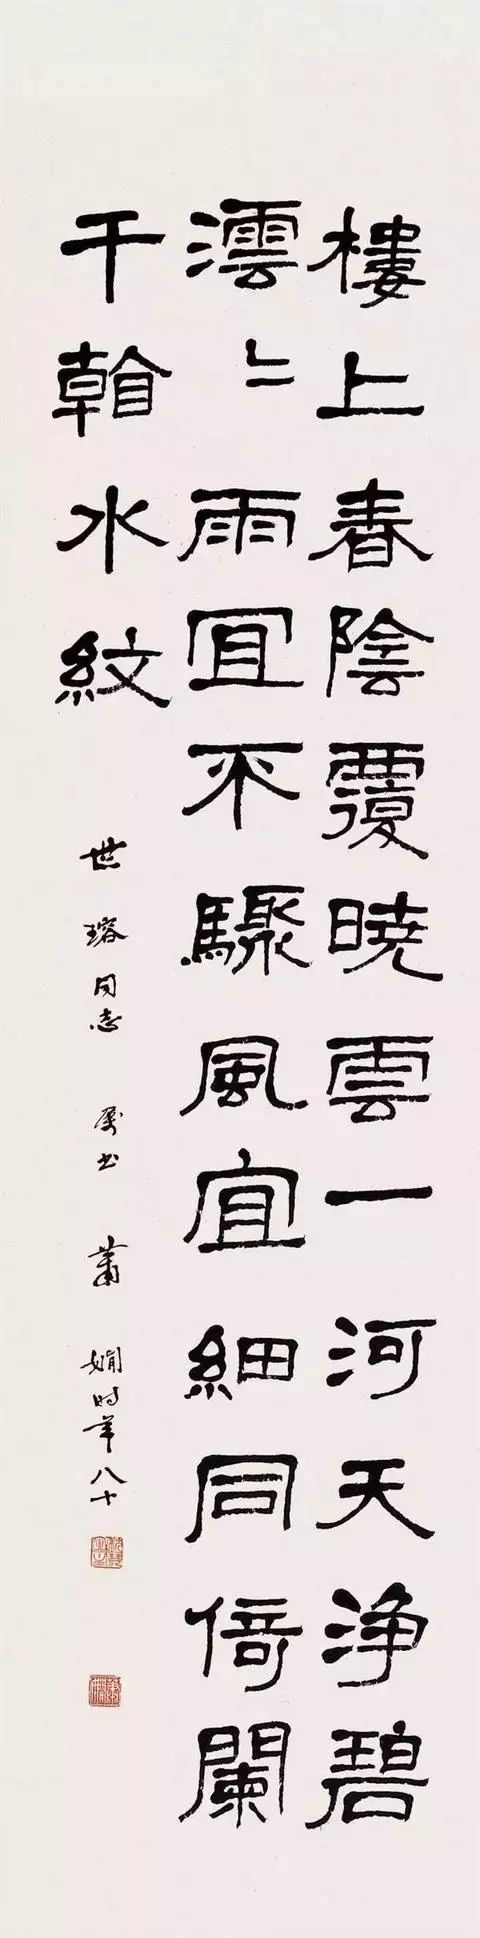 樓上春陰覆曉雲一河天淨碧
澐〻雨冝不驟風宜細同倚闌
干水紋
世瑢同志 屬書 蕭嫻时年八十